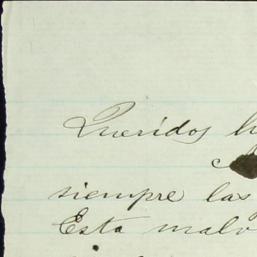 Queridos
siempre las
Esta